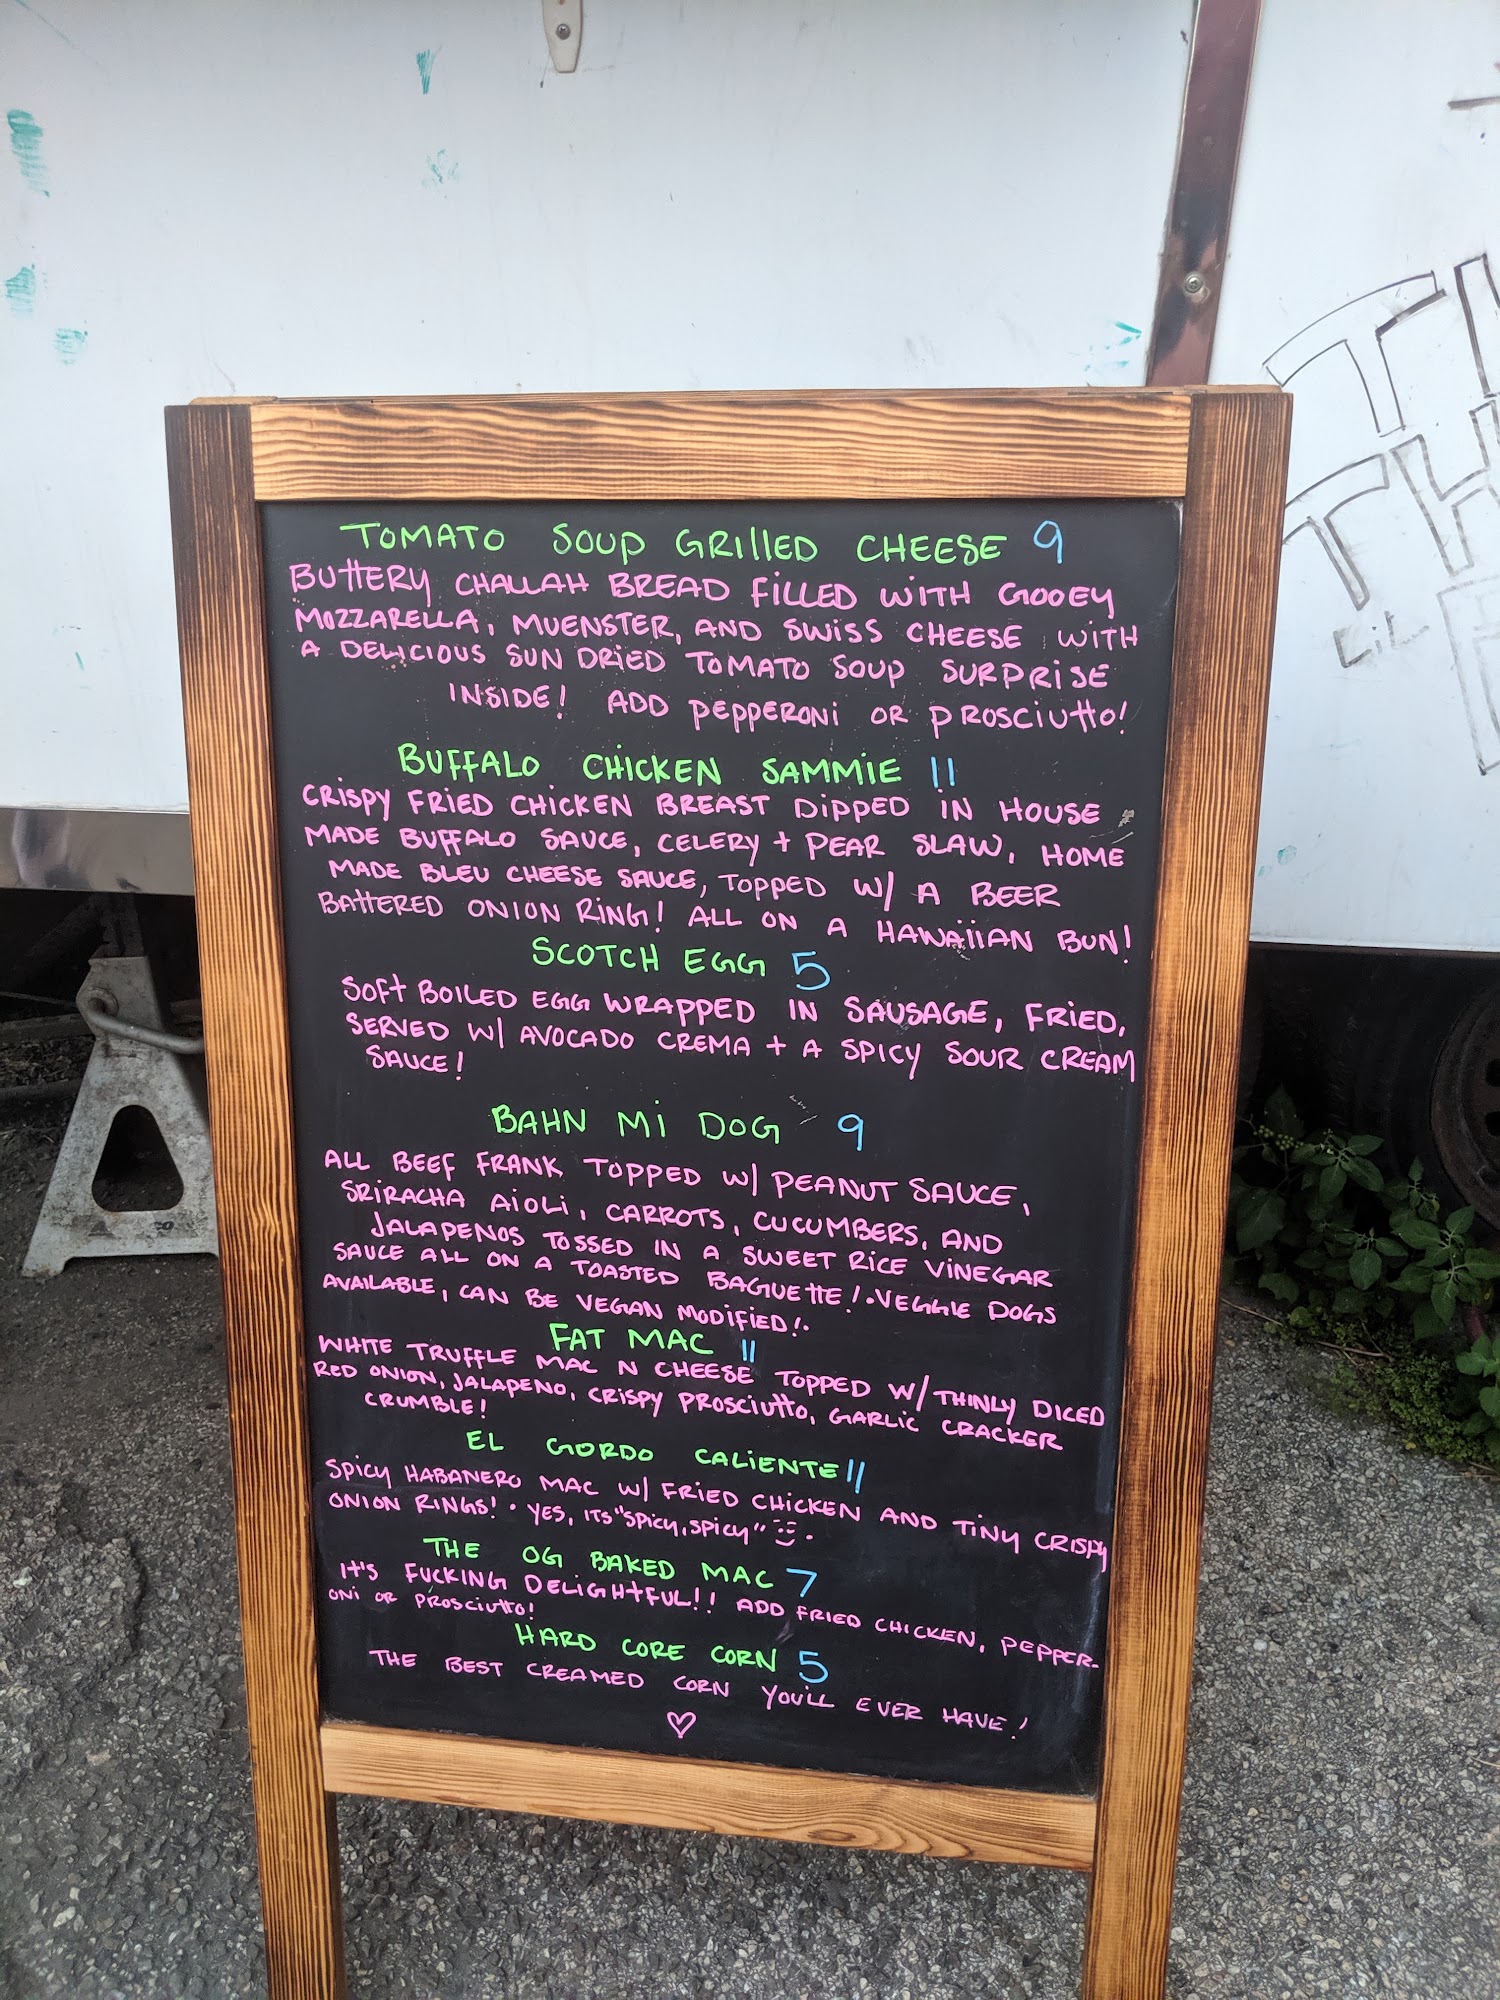 TOMATO SOUP GRILLED CHEESE 9
BUTTERY CHALLAH BREAD FILLED WITH GOOEY
MOZZARELLA, MUENSTER, AND SWISS CHEESE WITH
A DELICIOUS SUN DRIED TOMATO SOUP SURPRISE
INSIDE! ADD PEPPERONI OR PROSCIUTTO!
BUFFALO CHICKEN SAMMIE 11
CRISPY FRIED CHICKEN BREAST DIPPED IN HOUSE
MADE BUFFALO SAUCE, CELERY + PEAR SLAW, HOME
MADE BLEU CHEESE SAUCE, TOPPED W/ A BEER
BATTERED ONION RING! ALL ON A HAWAIIAN BUN!
SCOTCH EGG 5
SOFT BOILED EGG WRAPPED IN SAUSAGE, FRIED,
SERVED W/ AVOCADO CREMA + A SPICY SOUR CREAM
SAUCE!
BAHN MI DOG 9
ALL BEEF FRANK TOPPED W/ PEANUT SAUCE,
SRIRACHA AIOLI, CARROTS, CUCUMBERS, AND
JALAPENOS TOSSED IN A SWEET RICE VINEGAR
SAUCE ALL ON A TOASTED BAGUETTE! • VEGGIE DOGS
AVAILABLE, CAN BE VEGAN MODIFIED! •
FAT MAC 11
WHITE TRUFFLE MAC N CHEESE TOPPED W/ THINLY DICED
RED ONION, JALAPENO, CRISPY PROSCIUTTO, GARLIC CRACKER
CRUMBLE!
EL GORDO CALIENTE 11
SPICY HABANERO MAC W/ FRIED CHICKEN AND TINY CRISPY
ONION RINGS! • YES, ITS "SPICY, SPICY" •
THE OG BAKED MAC 7
IT'S FUCKING DELIGHTFUL!! ADD FRIED CHICKEN, PEPPER-
ONI OR PROSCIUTTO!
HARD CORE CORN 5
THE BEST CREAMED CORN YOU'LL EVER HAVE!
LIL